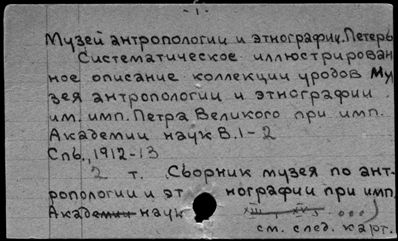 - 1 -
Музей антропологии и этнографии. Петерь
Систематическое иллюстрирован
ное описание коллекции уродов Му
зея антропологии и этнографии
им. имп. Петра Великого при имп.
Академии наук В.1-2
Спб., 1912-13
2 т. Сборник музея по ант-
ропологии и эт нографии при имп.
Академии наук XIII, XV ...)
см. след. карт.